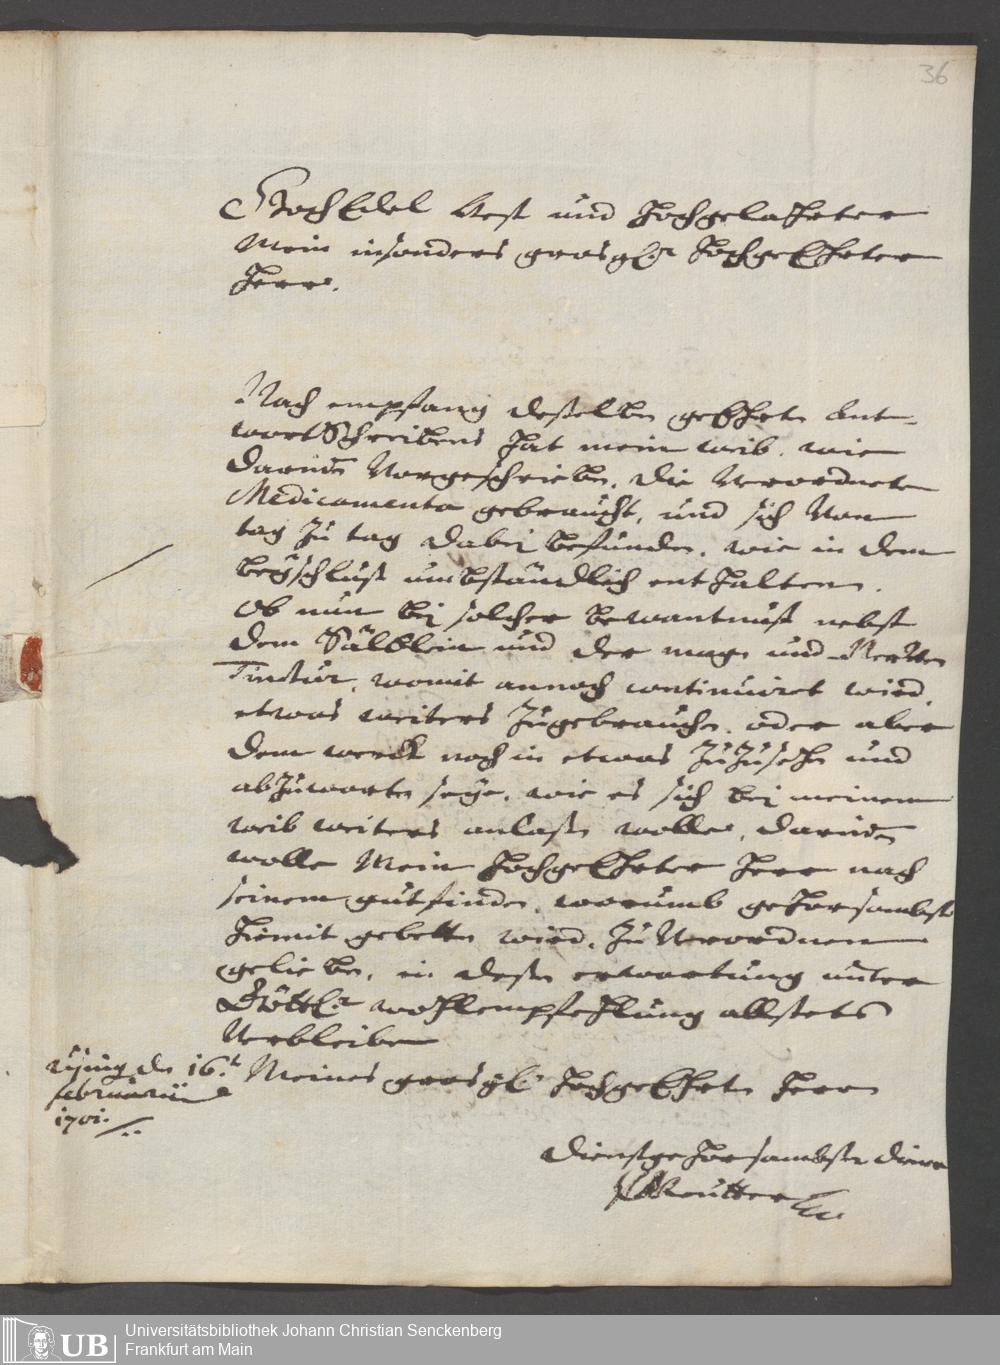 36
HochEdel Vest und Hochgelahrter
Mein insonders grosg. HochgeEhrter
Herr.
Nach empfang deßelben geEhrten Ant-
wortSchreibens hat mein weib, wie
darinen Vorgeschrieben, die Verordneten
Medicamenta gebraucht, und sich Von
tag zu tag dabei befunden, wie in dem
beÿschluß umbständlich enthalten.
Ob nun bei solcher bewantnuß nebst
dem Sälblein und der magen und Nerven
Tinctur, womit annoch continuiret wird,
etwas weiters zugebrauchen, oder aber
dem werck noch in etwas zuzusehen und
abzuwarten seye, wie es sich bei meinem
weib weiters anlaßen wolle, darüber
wolle Mein HochgeEhrter Herr nach
seinem gutfinden, worumb gehorsambst
hiemit gebetten wird, zu Verordnen
gelieben, in deßen erwartung unter
Göttl. wohlempfehlung allstets
Verbleibe
Meines grosg. HochgeEhrten Herrn
den 16.t
Februarii
1701.
dienstgehorsambster diener
Reutter
UB
Universitätsbibliothek Johann Christian Senckenberg
Frankfurt am Main